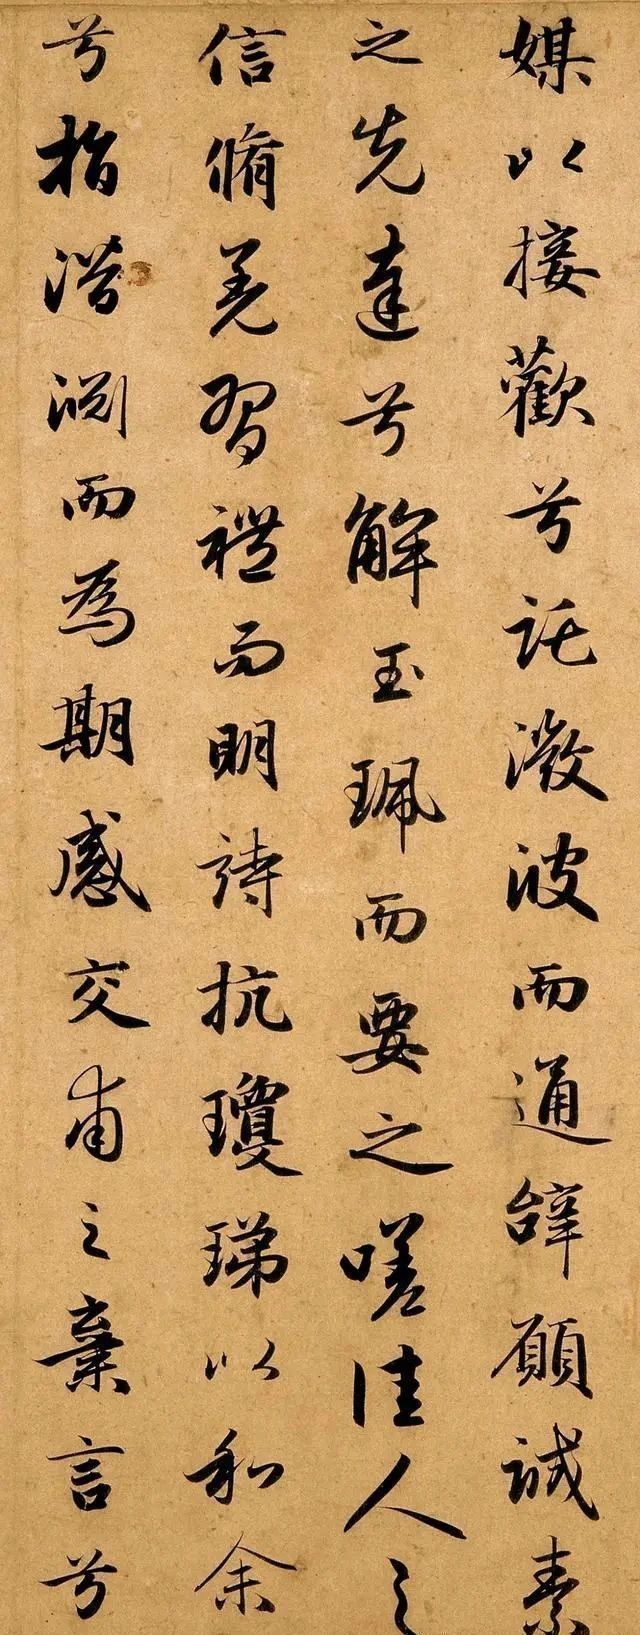 媒以接歡兮託微波而通辭願誠素
之先達兮解玉珮而要之嗟佳人之
信脩羌習禮而明詩抗瓊珶以和余
兮指潛淵而為期感交甫之棄言兮